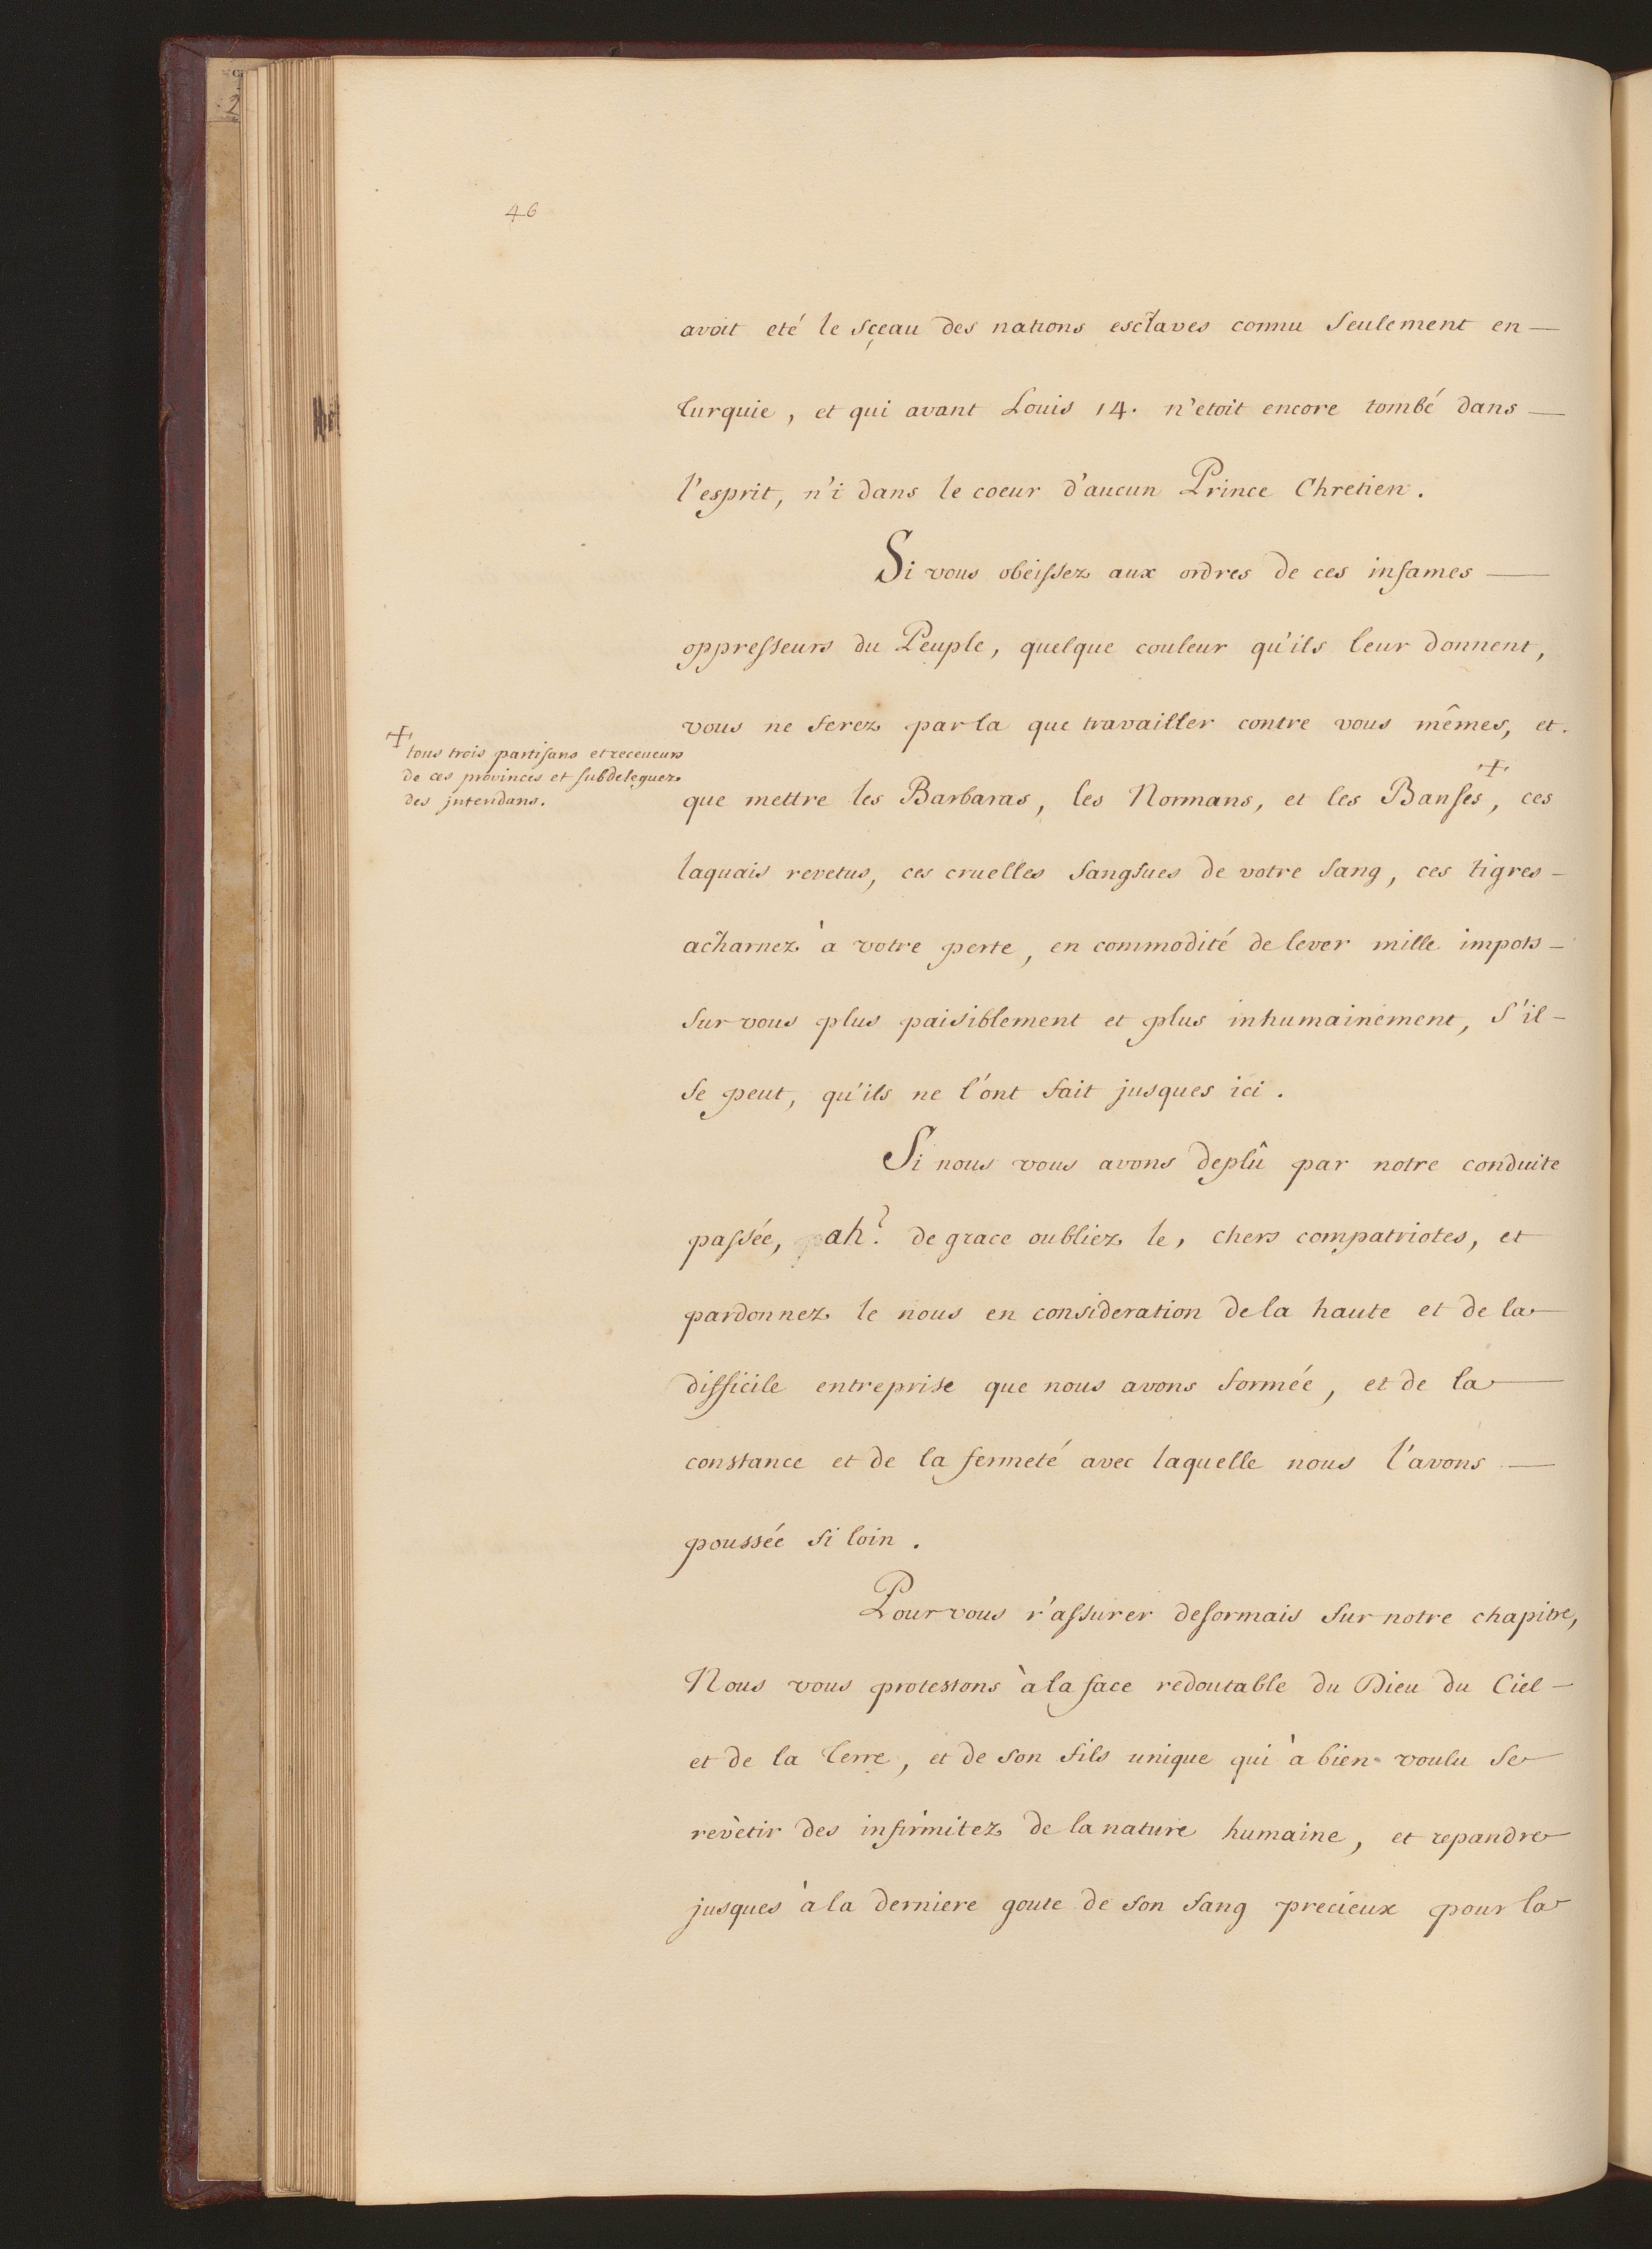 46
avoit eté le sçeau des nations esclaves connu seulement en
Turquie, et qui avant Louis 14. n'etoit encore tombé dans
l'esprit, n'i dans le coeur d'aucun Prince Chretien.
Si vous obeissez aux ordres de ces infames
oppresseurs du Peuple, quelque couleur qu'ils leur donnent,
vous ne ferez par la que travailler contre vous mêmes, et.
+ tous trois partisans et receueurs
de ces provinces et subdeleguez
des jntendans.
que mettre les Barbaras, les Normans, et les Banses +, ces
laquais revetus, ces cruelles sangsues de votre sang, ces tigres
acharnez à votre perte, en commodité de lever mille impots
sur vous plus paisiblement et plus inhumainement, s'il
se peut, qu'ils ne l'ont fait jusques ici.
Si nous vous avons deplû par notre conduite
passée, ah? de grace oubliez le, chers compatriotes, et
pardonnez le nous en consideration de la haute et de la
difficile entreprise que nous avons formée, et de la
constance et de la fermeté avec laquelle nous l'avons
poussée si loin.
Pour vous r'assurer desormais sur notre chapitre,
Nous vous protestons à la face redoutable du Dieu du Ciel
et de la Terre, et de son fils unique qui à bien voulu se
revètir des infirmitez de la nature humaine, et repandre
jusques à la derniere goute de son sang precieux pour la